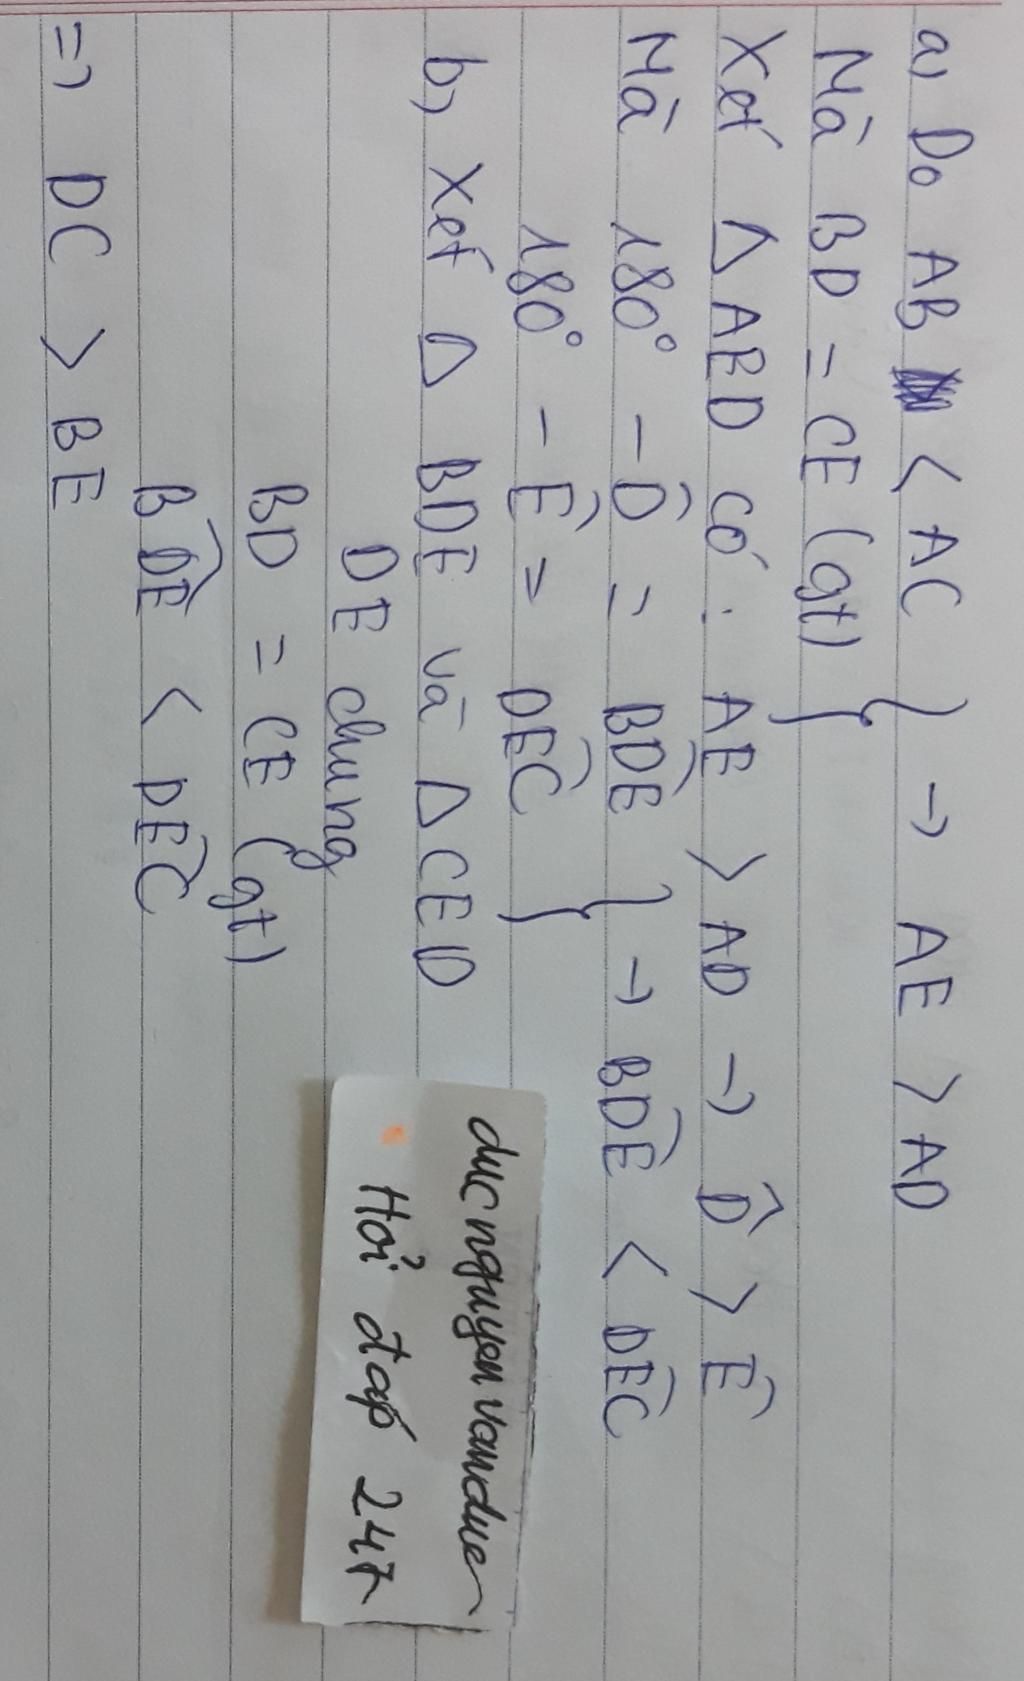 a, Do AB < AC } → AE > AD
Mà BD = CE (gt)
Xét Δ ABD có : AE > AD → D̂ > Ê
Mà 180° - D̂ = BD̂E } → BD̂E < DÊC
180° - Ê = DÊC
b, Xét Δ BDE và Δ CED
DE chung
BD = CE (gt)
BD̂E < DÊC
=> DC > BE
ducnguyenvanduc
Hỏi đáp 247